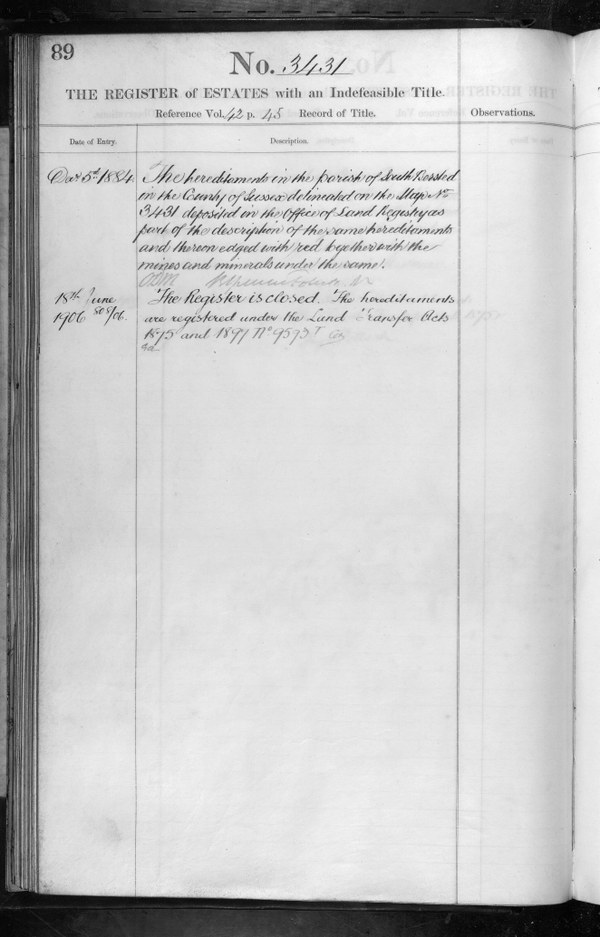 89
No. 3431
THE REGISTER of ESTATES with an Indefeasible Title.
Reference Vol. 42 p. 45 Record of Title.
Observations.
Date of Entry.
Description.
5th 1884.
The hereditaments in the parish of South Bersted
in the County of Sussex delineated on the Map No
3431 deposited in the Office of Land Registry as
part of the description of the same hereditaments
and thereon edged with red together with the
mines and minerals under the same.
18th June
1906
The Register is closed. The hereditaments
are registered under the Land Transfer Acts
1875 and 1897 No 9573